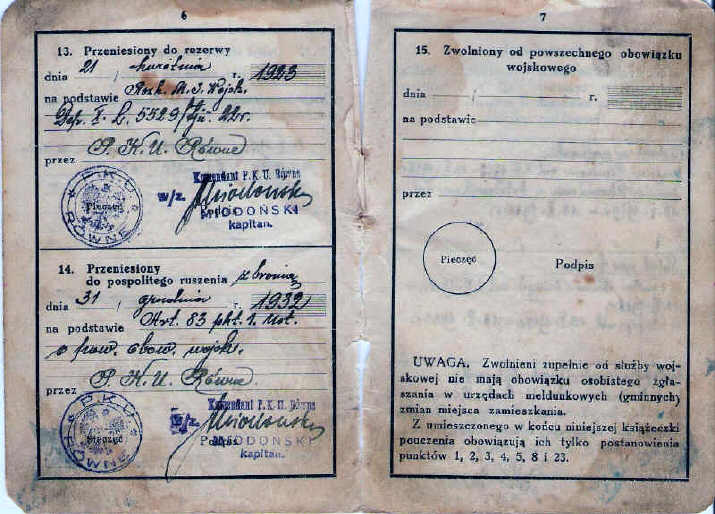 6
13. Przeniesiony do rezerwy
dnia 21 / kwietnia r. 1923
na podstawie Rozk. M. S. Wojsk.
Dep. X. L. 5529/ 22r.
P. K. U. Równe
przez
Komendant P. K. U. Równe
w/z.
Pieczęć
P.K.U. RÓWNE
MIODOŃSKI
kapitan.
14. Przeniesiony
do pospolitego ruszenia z bronią
dnia 31 / grudnia r. 1932
na podstawie Art. 83 pkt. 1. Ust.
o pow. obow. wojsk.
P. K. U. Równe
przez
Komendant P.K.U. Równe
w/z.
Pieczęć
P.K.U. RÓWNE
Podpis
MIODOŃSKI
kapitan.
7
15. Zwolniony od powszechnego obowiązku
wojskowego
dnia / r.
na podstawie
przez
Pieczęć
Podpis
UWAGA. Zwolnieni zupełnie od służby woj-
skowej nie mają obowiązku osobistego zgła-
szania w urzędach meldunkowych (gminnych)
zmian miejsca zamieszkania.
Z umieszczonego w końcu niniejszej książeczki
pouczenia obowiązują ich tylko postanowienia
punktów 1, 2, 3, 4, 5, 8 i 23.